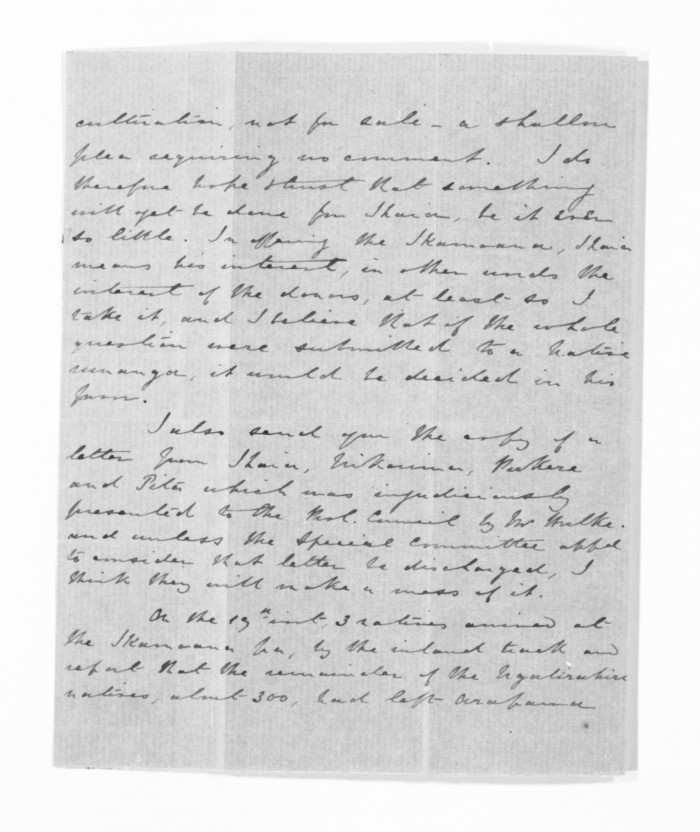 cultivation, not for sale - a shallow
plea requiring no comment. I do
therefore hope & trust that something
will yet be done for Ihaia, be it ever
so little. In offering the Ikamoana, Ihaia
means his interest, in other words the
interest of the donors, at least so I
take it, and I believe that if the whole
question were submitted to a Native
runanga, it would be decided in his
favor.
I also send you the copy of a
letter from Ihaia, Nikorima, Pukere
and Pita which was injudiciously
presented to the Prol. Council by Mr Hulke.
and unless the Special Committee appd
to consider that letter be discharged, I
think they will make a mess of it.
On the 19th inst, 3 natives arrived at
the Ikamoana pa, by the inland track and
report that the remainder of the Ngatiruahine
natives, about 300, had left Arapawa